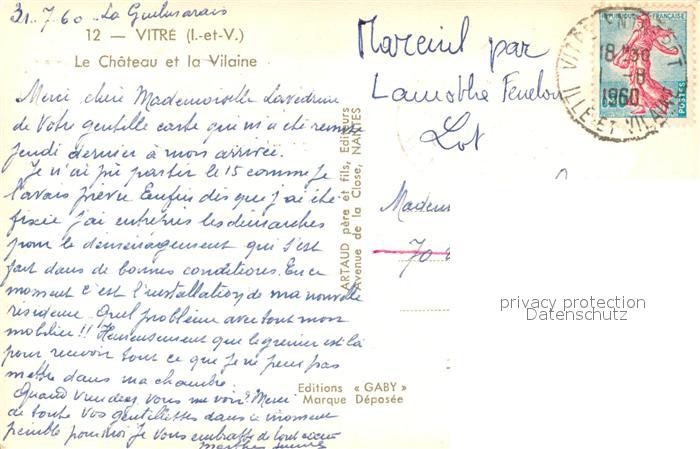 31.7.60. La
12 — VITRÉ (I.-et-V.)
Le Château et la Vilaine
Merci, chère Mademoiselle Lavedrine
de Votre gentille carte qui m'a été remise
jeudi dernier à mon arrivée.
Je n'ai pu partir le 15 comme je
l'avais prévu Enfin dès que j'ai été
fixée j'ai entrepris les démarches
pour le déménagement qui s'est
fait dans de bonnes conditions. En ce
moment c'est l'installation de ma nouvelle
résidence. Quel problème avec tout mon
mobilier!! Heureusement que le grenier est là
pour recevoir tout ce que je ne peux pas
mettre dans ma chambre.
Quand viendrez vous me voir? Merci
de toute vos gentillesses dans ce moment
pénible pour moi Je vous embrasse de tout cœur
ARTAUD père et fils, Editeurs
Avenue de la Close, NANTES
Editions « GABY »
Marque Déposée
Mareuil par
Lamothe Fenelon
Lot
Madem
70
REPUBLIQUE FRANÇAISE
POSTES
VITRE
18H30
1 -8
1960
ILLE-ET-VILAINE
privacy protection
Datenschutz